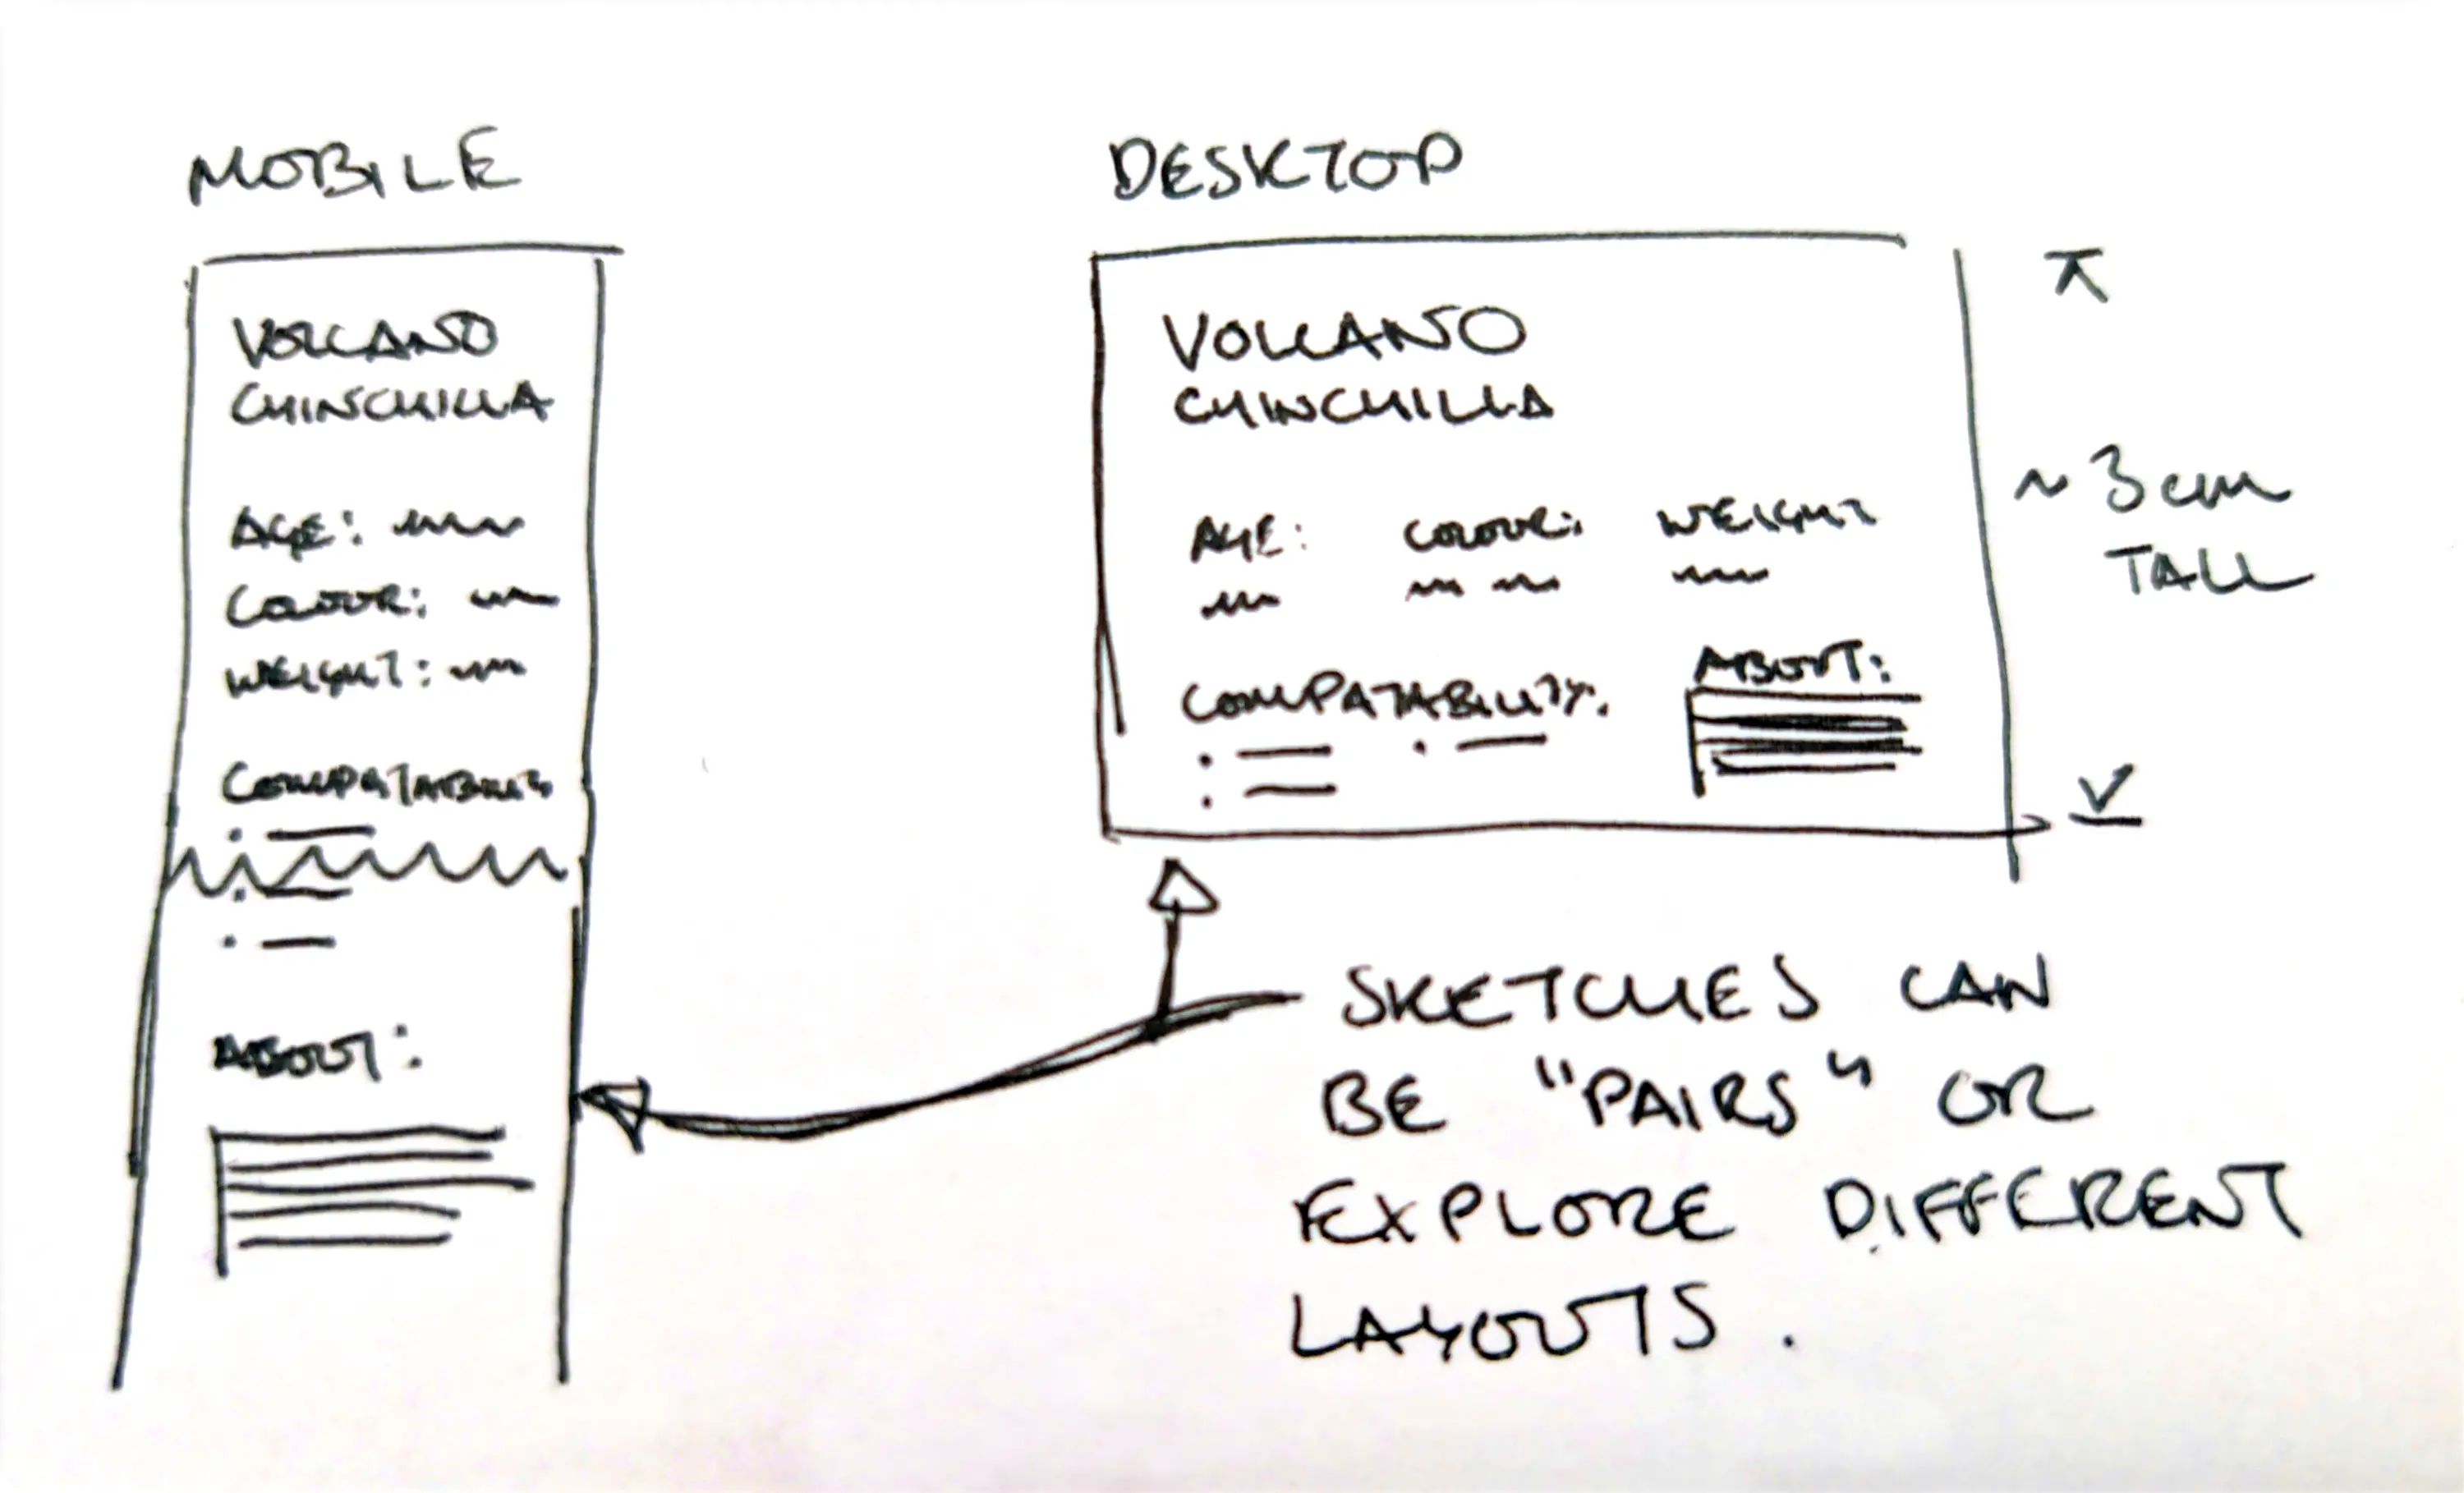 MOBILE
VOLCANO
CHINCHILLA
AGE:
COLOUR:
WEIGHT:
COMPATABILITY
ABOUT:
DESKTOP
VOLCANO
CHINCHILLA
AGE: COLOUR: WEIGHT
COMPATABILITY: ABOUT:
~ 3cm
TALL
SKETCHES CAN
BE "PAIRS" OR
EXPLORE DIFFERENT
LAYOUTS.